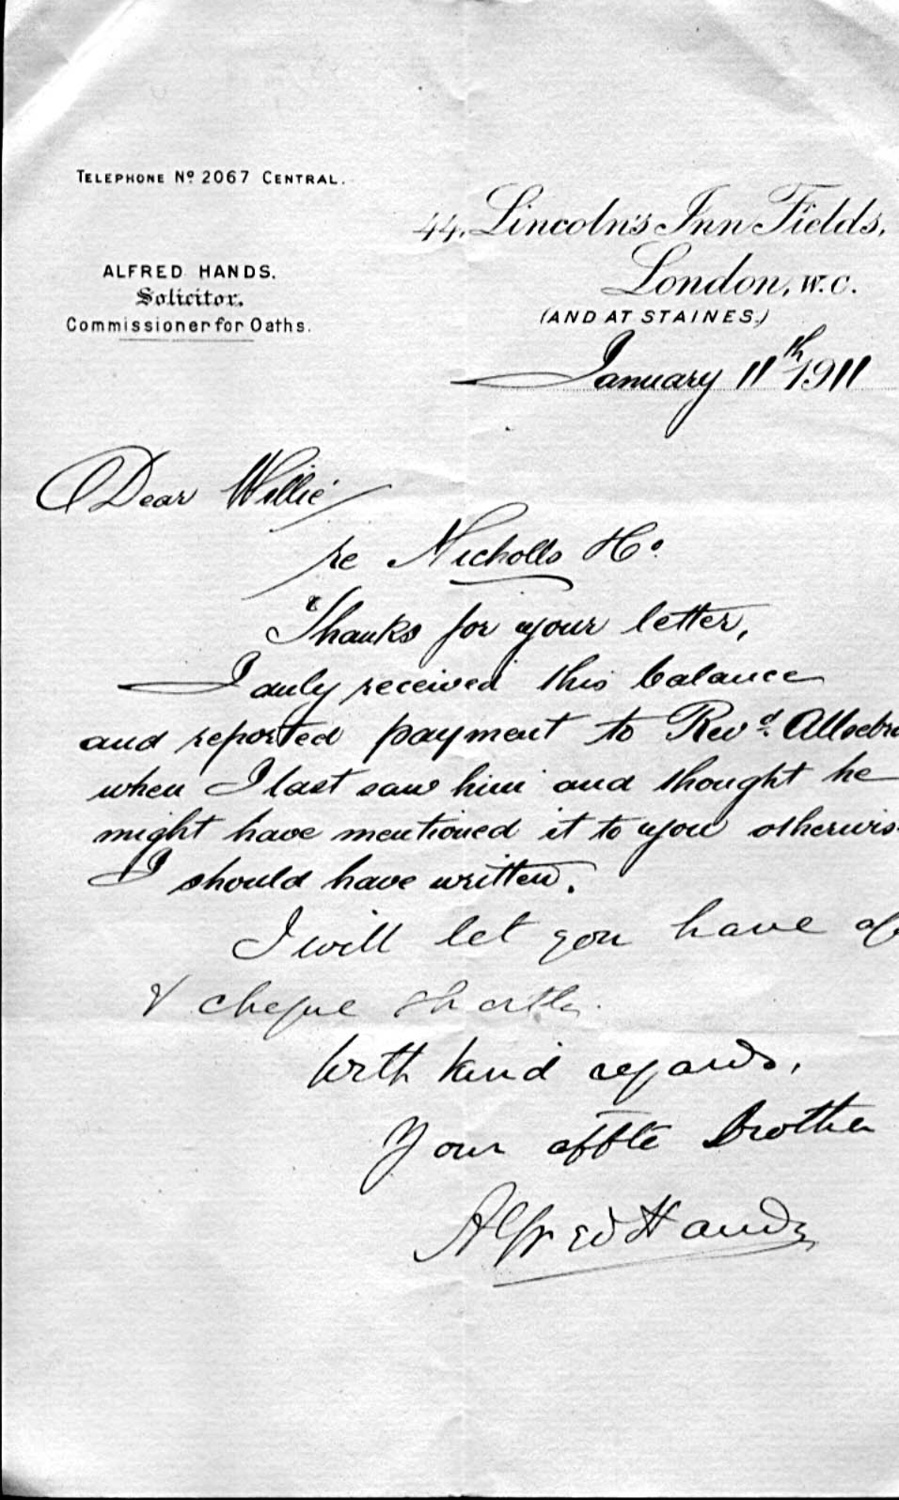 TELEPHONE Nº 2067 CENTRAL.
44, Lincoln's Inn Fields,
London, W.C.
(AND AT STAINES.)
ALFRED HANDS.
Solicitor.
Commissioner for Oaths.
January 11th 1911
Dear Willie
re Nicholls
Thanks for your letter,
I duly received this balance
and reported payment to Revd.
when I last saw him and thought he
might have mentioned it to you
I should have written.
I will let you have
& cheque shortly.
With kind regards,
Your affte Brother
Alfred Hands